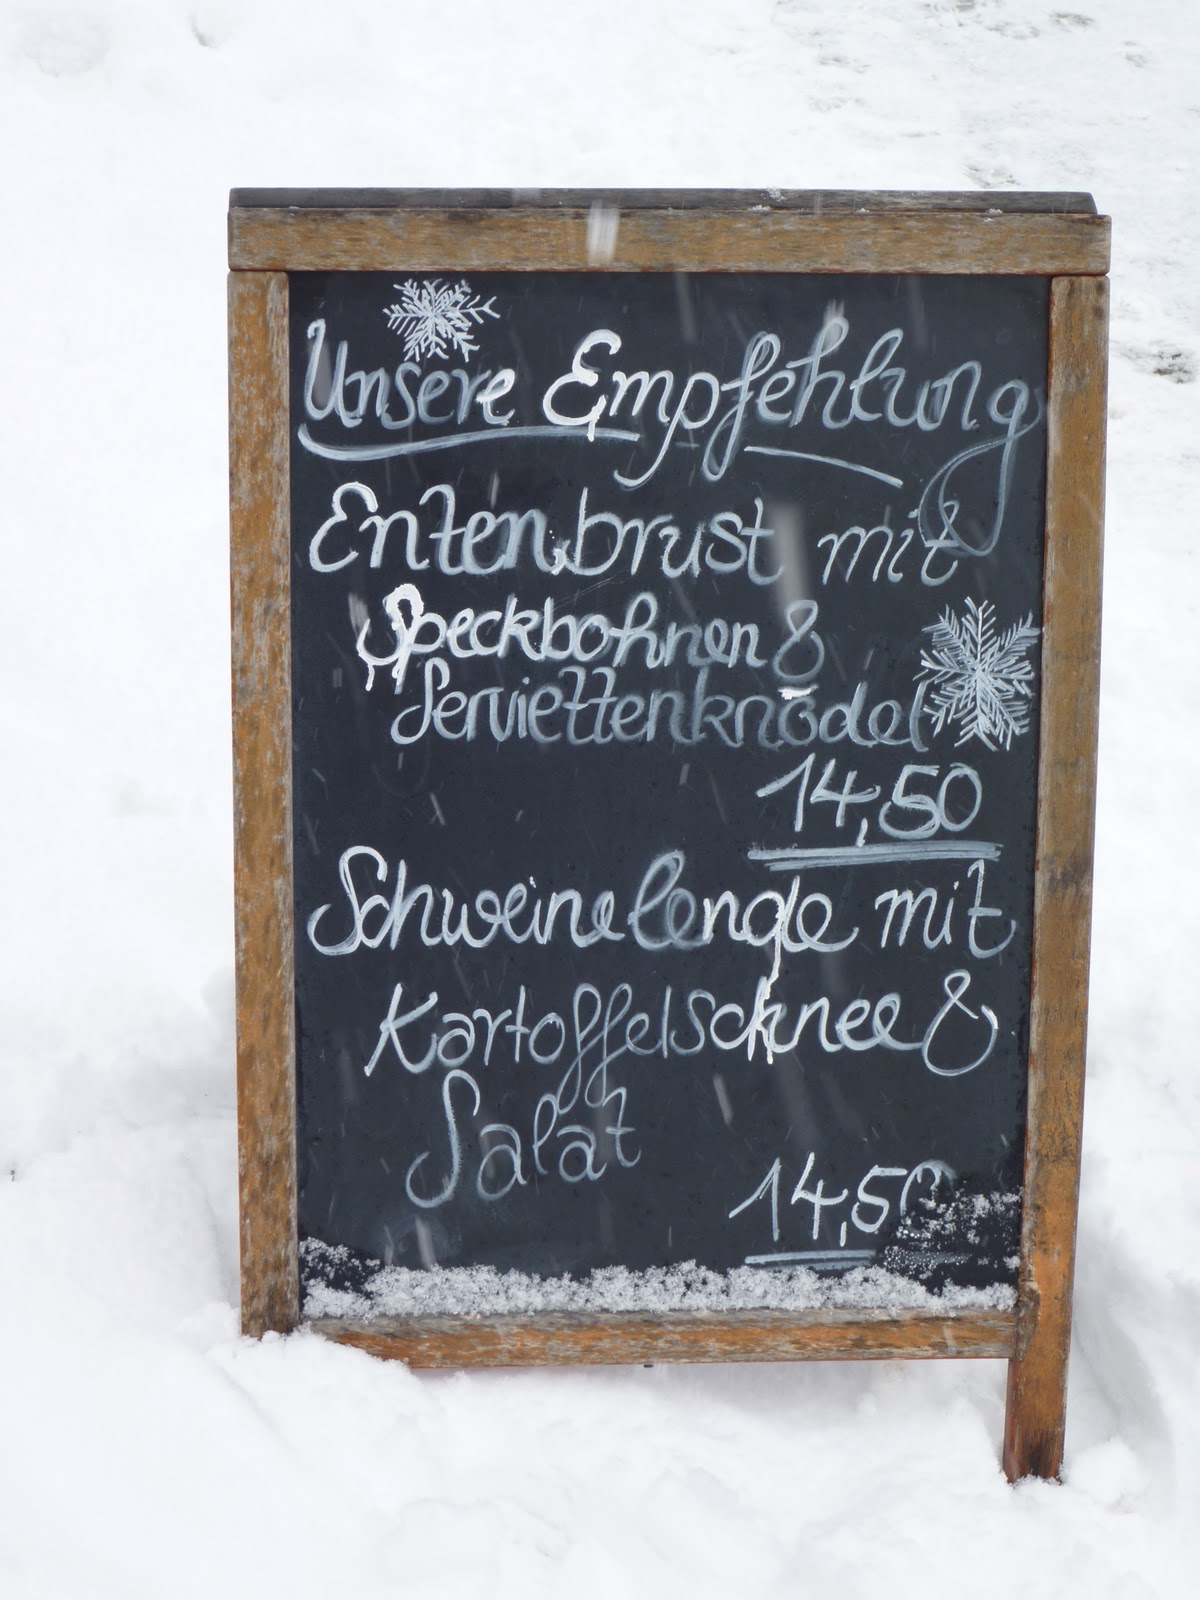 Unsere Empfehlung
Entenbrust mit
Speckbohnen &
Serviettenknödel
14,50
Schweinelende mit
Kartoffelschnee &
Salat
14,50